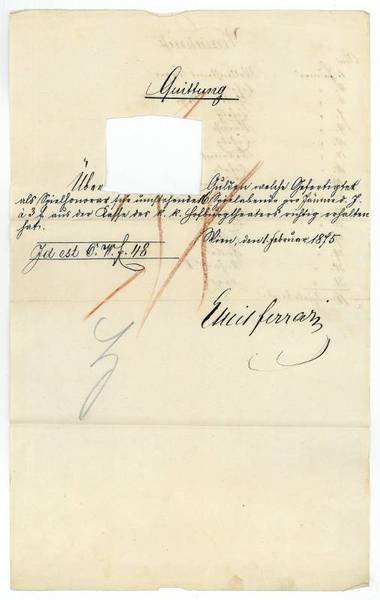 Quittung
Über Gulden welche Gefertigter
als Spielhonorar für umstehende 16 Spielabende pro Jänner d. J.
à 3 f. aus der Kasse des k. k. Hofburgtheaters richtig erhalten
hat.
Wien, den 1. Februar 1875
Id est Ö. W. f. 48